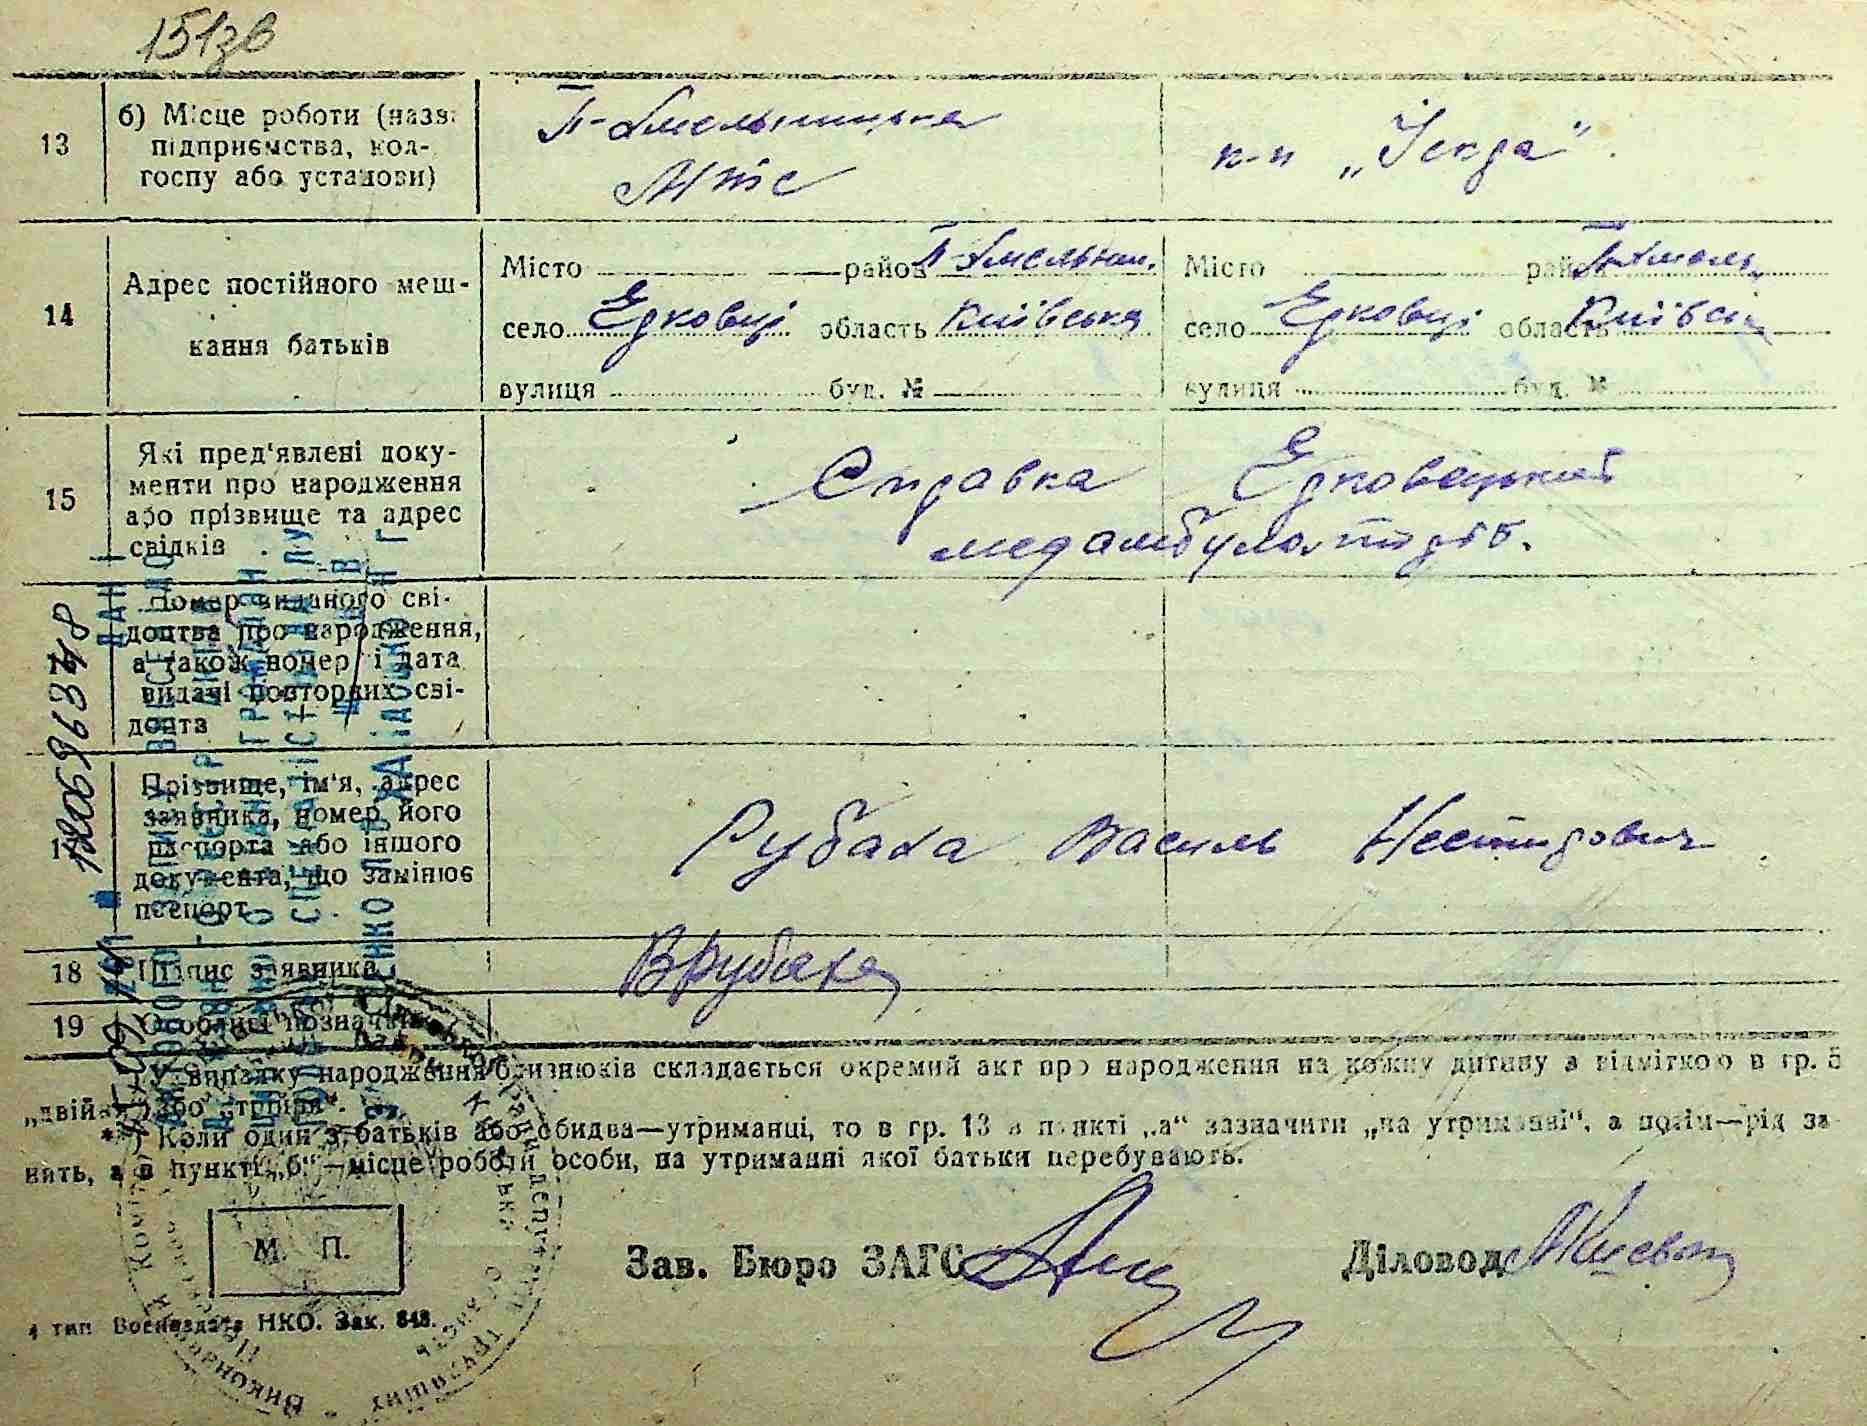 151зв
13
б) Місце роботи (назва
підприємства, кол-
госпу або установи)
П-Хмельницька
МТС
к-п „Іскра“
14
Адрес постійного меш-
кання батьків
Місто район П-Хмельниц.
село Єрковці область Київська
вулиця буд. №
Місто район П-Хмель
село Єрковці область Київсь
вулиця буд. №
15
Які пред'явлені доку-
менти про народження
або прізвище та адрес
свідків
Справка Єрковецький
медамбулаторіѣ.
Номер виданого сві-
доцтва про народження,
а також номер і дата
видачі повторних сві-
доцтв
Прізвище, ім'я, адрес
заявника, номер його
паспорта або іншого
документа, що замінює
паспорт
Рубаха Василь Несторович
18
Підпис заявника
ВРубаха
19
Особливі позначки
У випадку народження близнюків складається окремий акт про народження на кожну дитину з відміткою в гр. 5
„двійня“ або „трійня“.
**) Коли один з батьків або обидва—утриманці, то в гр. 13 в пункті „а“ зазначити „на утриманні“, а потім—рід за-
нять, а в пункті „б“—місце роботи особи, на утриманні якої батьки перебувають.
М. П.
Зав. Бюро ЗАГС
Діловод
4 тип Воениздата НКО. Зак. 843.